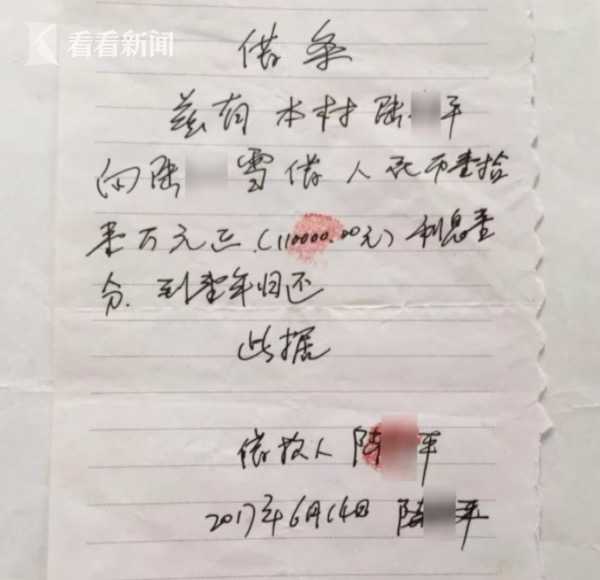 看看新闻
借条
兹有本村陆 平
向陆 雪借人民币壹拾
壹万元正(110000.00元)利息壹
分.到壹年归还
此据
借款人 陆 平
2017年6月14日 陆 平